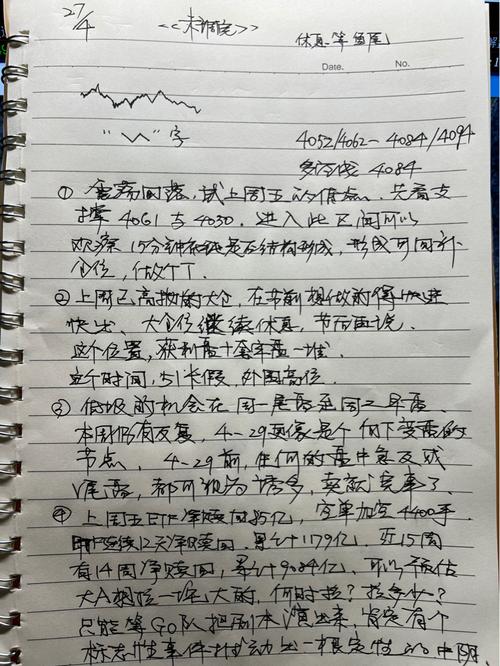 27/4
<<未搞定>>
休息等鱼尾
Date. No.
"W" 字
4052/4062- 4084/4094
多空线 4084
① 震荡回落,试上周五的低点. 先看支
撑 4061 与 4030. 进入此区间可以
观察 15分钟级别是否结构形成, 形成可回补
仓位, 做个T.
② 上周已高抛的大仓, 在节前想做的得快进
快出、大仓位继续休息, 节后再说.
这个位置, 获利盘+套牢盘一堆.
这个时间, 51长假, 外围高位.
③ 低吸的机会在周一尾盘至周二早盘.
本周仍有反复, 4-29更像是个向下变盘的
节点. 4-29前, 任何的盘中急拉或
尾盘, 都可视为诱多, 卖就完事了.
④ 上周五ETF净赎回85亿, 空单加空4400手.
ETF连续12天净赎回. 累计+1179亿, 近15周
有14周净赎回, 累计+9084亿, 可以预估
大A想拉一定大的, 何时拉? 拉多少?
只能等GJD把剧本演出来, 肯定有个
标志性事件推动出一根定性的中阴